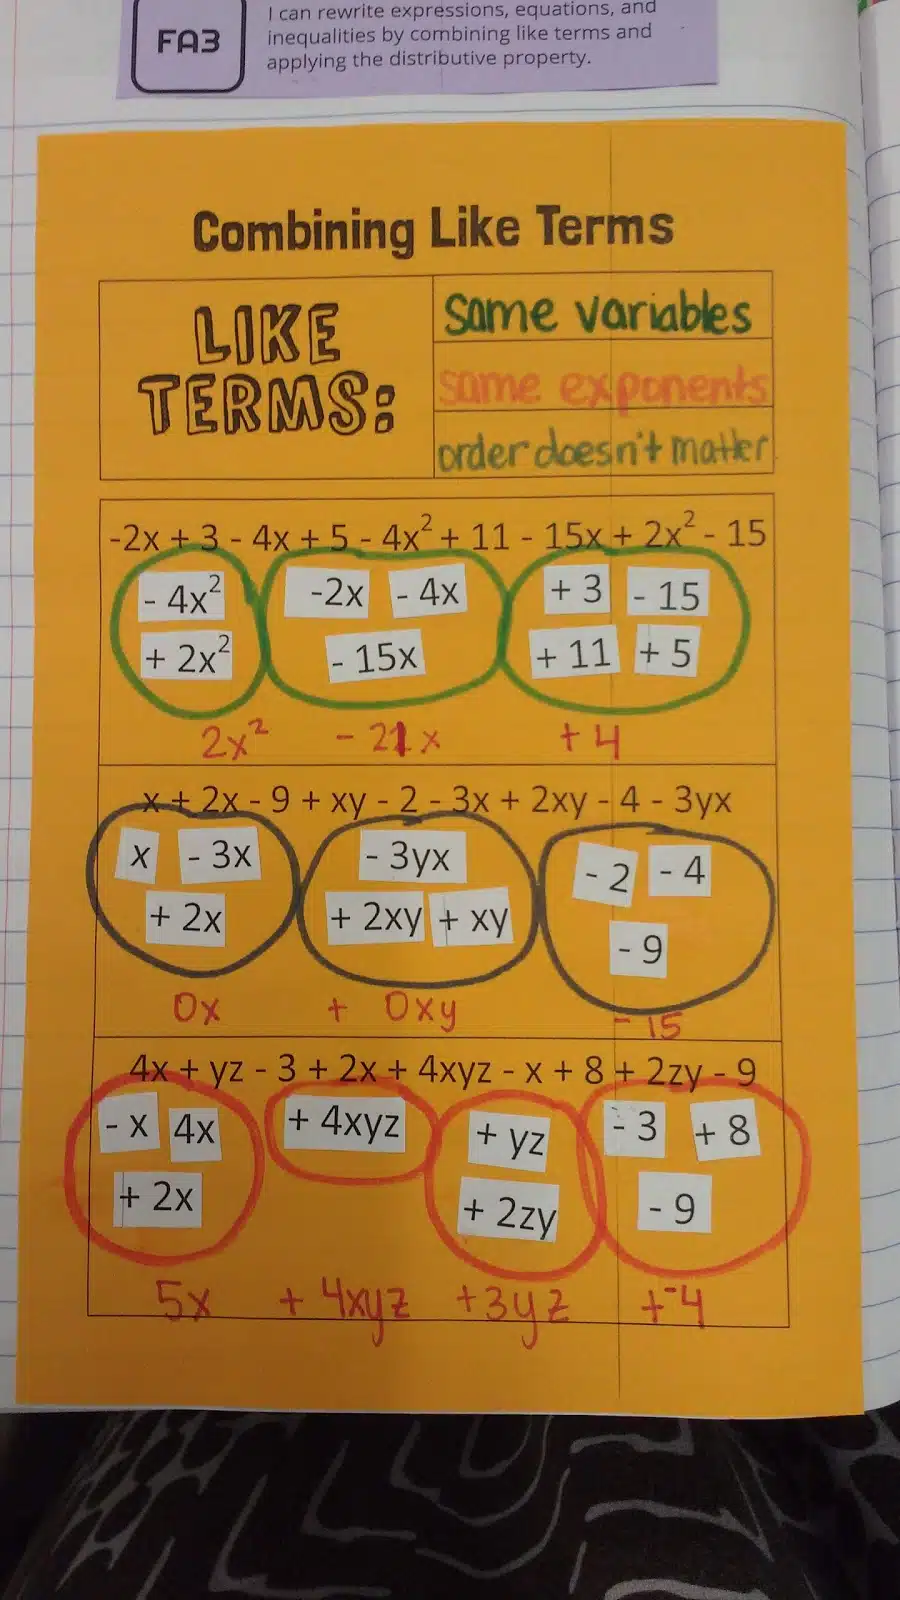 FA3
I can rewrite expressions, equations, and
inequalities by combining like terms and
applying the distributive property.
Combining Like Terms
LIKE
TERMS:
same variables
same exponents
order doesn't matter
-2x + 3 - 4x + 5 - 4x² + 11 - 15x + 2x² - 15
- 4x² -2x - 4x + 3 - 15
+ 2x² - 15x + 11 + 5
2x² - 21x + 4
x + 2x - 9 + xy - 2 - 3x + 2xy - 4 - 3yx
x - 3x - 3yx - 2 - 4
+ 2x + 2xy + xy - 9
0x + 0xy - 15
4x + yz - 3 + 2x + 4xyz - x + 8 + 2zy - 9
- x 4x + 4xyz + yz - 3 + 8
+ 2x + 2zy - 9
5x + 4xyz + 3yz + -4